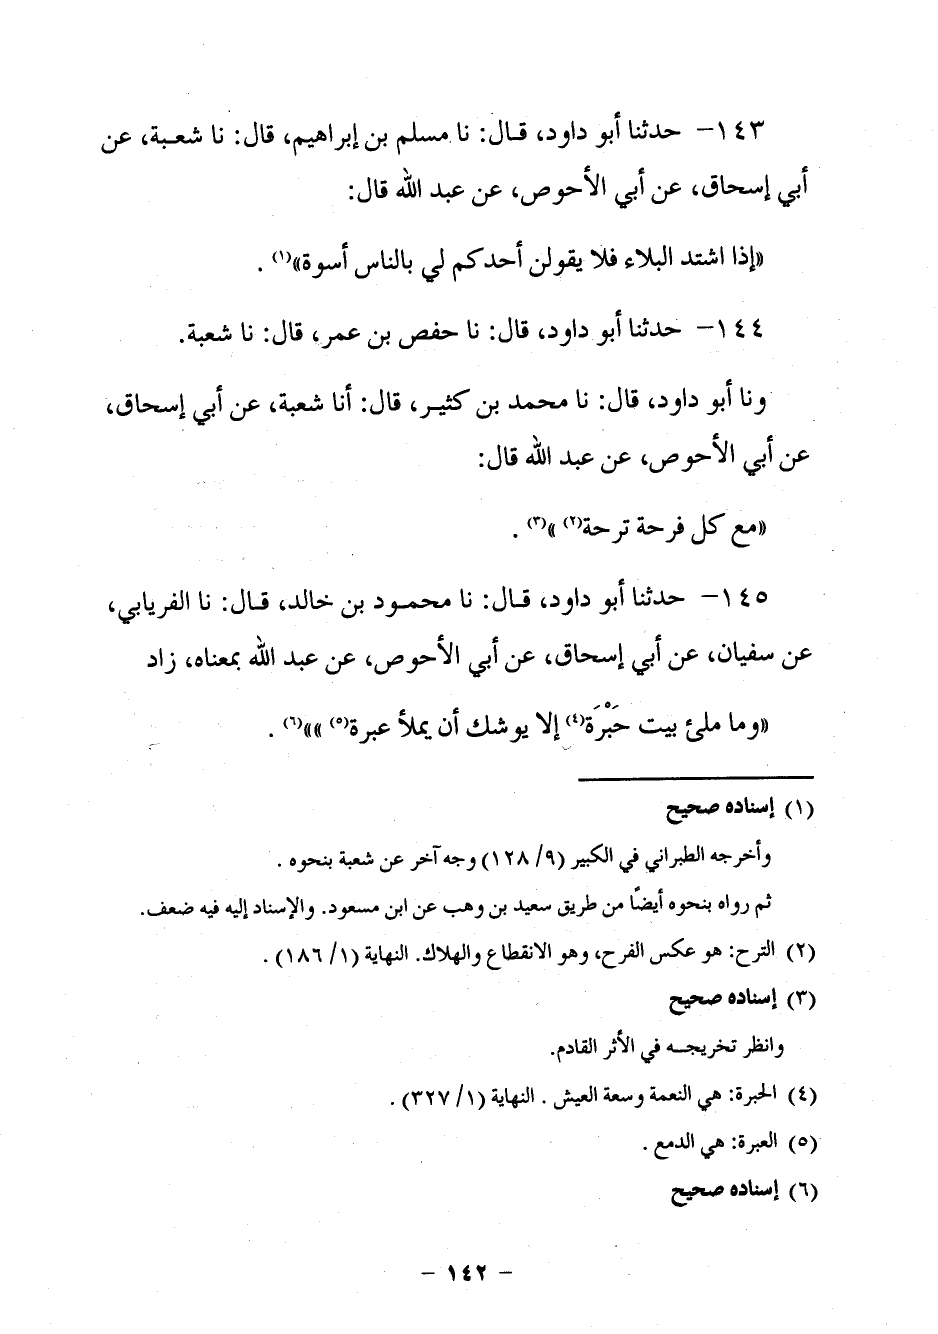 ١٤٣- حدثنا أبو داود، قـال: نا مسلم بن إبراهيم، قال: نا شعـبة، عن
أبي إسحاق، عن أبي الأحوص، عن عبد الله قال:
«إذا اشتد البلاء فلا يقولن أحدكم لي بالناس أسوة»(١) .
١٤٤- حدثنا أبو داود، قال: نا حفص بن عمر، قال: نا شعبة.
ونا أبو داود، قال: نا محمد بن كثيـر، قال: أنا شعبة، عن أبي إسحاق،
عن أبي الأحوص، عن عبد الله قال:
«مع كل فرحة ترحة(٢) »(٣) .
١٤٥- حدثنا أبو داود، قـال: نا محمـود بن خالد، قـال: نا الفريابي،
عن سفيان، عن أبي إسحاق، عن أبي الأحوص، عن عبد الله بمعناه، زاد
«وما ملئ بيت حَبْرَة(٤) إلا يوشك أن يملأ عبرة(٥) »»(٦) .
(١) إسناده صحيح
وأخرجه الطبراني في الكبير (٩/ ١٢٨) وجه آخر عن شعبة بنحوه .
ثم رواه بنحوه أيضًا من طريق سعيد بن وهب عن ابن مسعود. والإسناد إليه فيه ضعف.
(٢) الترح: هو عكس الفرح، وهو الانقطاع والهلاك. النهاية (١/ ١٨٦) .
(٣) إسناده صحيح
وانظر تخريجـه في الأثر القادم.
(٤) الحبرة: هي النعمة وسعة العيش . النهاية (١/ ٣٢٧) .
(٥) العبرة: هي الدمع .
(٦) إسناده صحيح
- ١٤٢ -